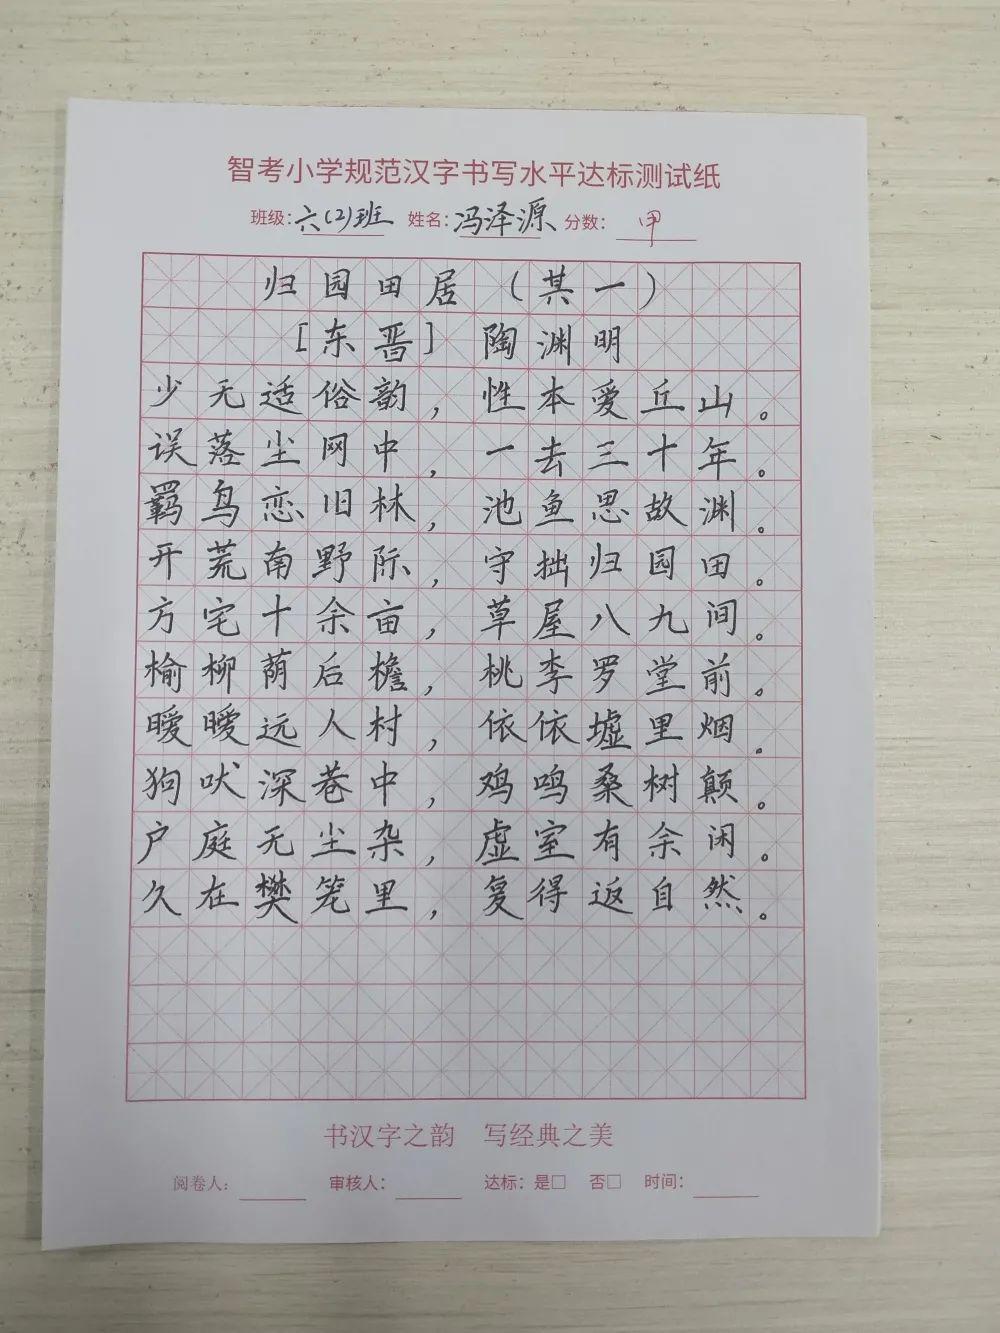 智考小学规范汉字书写水平达标测试纸
班级：六(2)班 姓名：冯泽源 分数：甲
归园田居（其一）
[东晋] 陶渊明
少无适俗韵，性本爱丘山。
误落尘网中，一去三十年。
羁鸟恋旧林，池鱼思故渊。
开荒南野际，守拙归园田。
方宅十余亩，草屋八九间。
榆柳荫后檐，桃李罗堂前。
暧暧远人村，依依墟里烟。
狗吠深巷中，鸡鸣桑树颠。
户庭无尘杂，虚室有余闲。
久在樊笼里，复得返自然。
书汉字之韵 写经典之美
阅卷人： 审核人： 达标：是□ 否□ 时间：